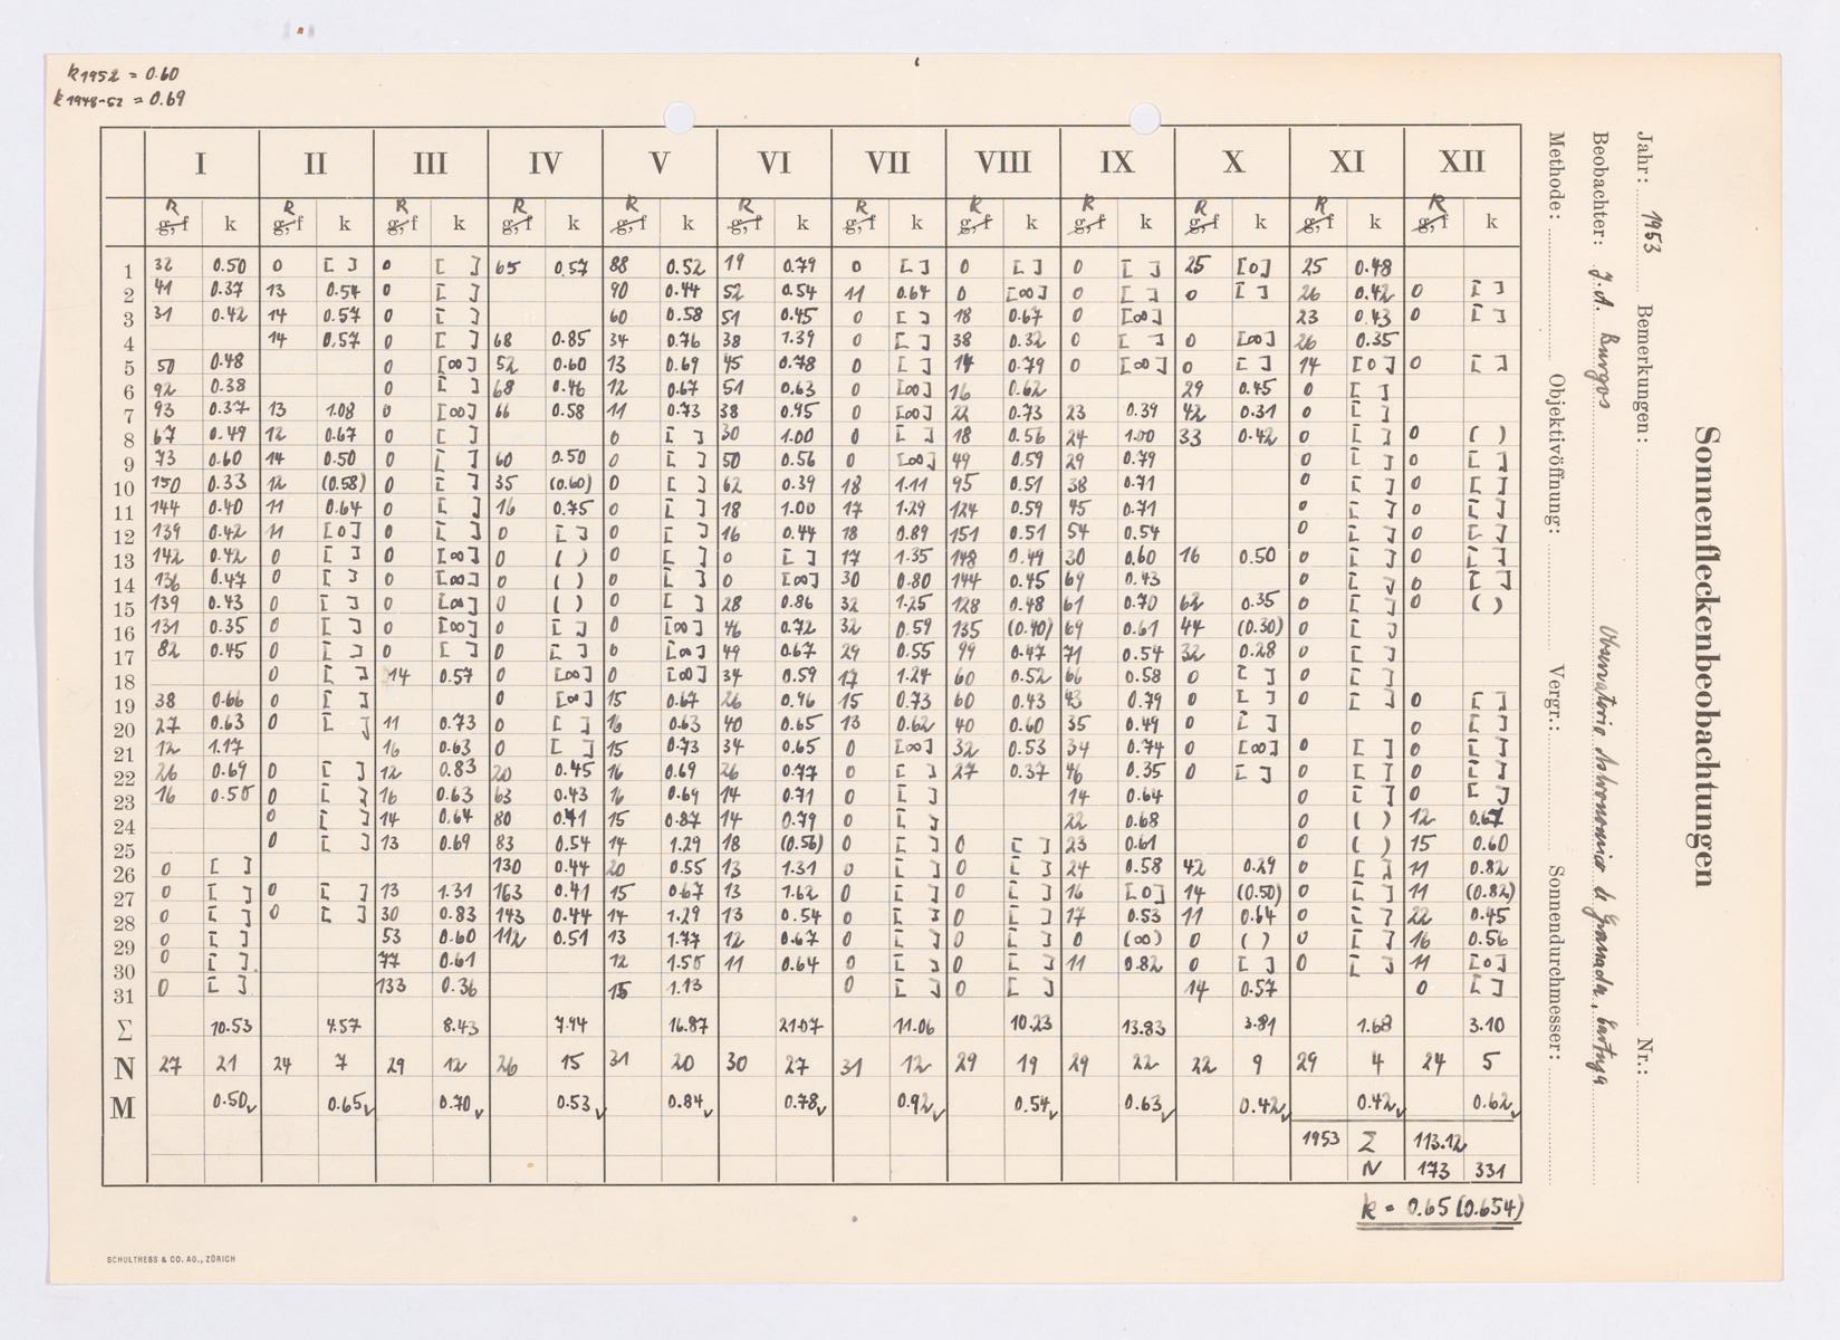 k 1952 = 0.60
k 1948-52 = 0.69
Sonnenfleckenbeobachtungen
Jahr: 1953 Bemerkungen: Nr.:
Beobachter: J.A. Burgos Observatorio Astronomico de Granada, Cartuja
Methode: Objektivöffnung: Vergr.: Sonnendurchmesser:
I II III IV V VI VII VIII IX X XI XII
R R R R R R R R R R R R
g,f k g,f k g,f k g,f k g,f k g,f k g,f k g,f k g,f k g,f k g,f k g,f k
1 32 0.50 0 [ ] 0 [ ] 65 0.57 88 0.52 19 0.79 0 [ ] 0 [ ] 0 [ ] 25 [0] 25 0.48
2 41 0.37 13 0.54 0 [ ] 90 0.44 52 0.54 11 0.64 0 [∞] 0 [ ] 0 [ ] 26 0.42 0 [ ]
3 31 0.42 14 0.57 0 [ ] 60 0.58 51 0.45 0 [ ] 18 0.67 0 [∞] 23 0.43 0 [ ]
4 14 0.57 0 [ ] 68 0.85 34 0.76 38 1.39 0 [ ] 38 0.32 0 [ ] 0 [∞] 26 0.35
5 50 0.48 0 [∞] 52 0.60 13 0.69 45 0.78 0 [ ] 14 0.79 0 [∞] 0 [ ] 14 [0] 0 [ ]
6 92 0.38 0 [ ] 68 0.46 12 0.67 51 0.63 0 [∞] 16 0.62 29 0.45 0 [ ]
7 93 0.37 13 1.08 0 [∞] 66 0.58 11 0.73 38 0.95 0 [∞] 22 0.73 23 0.39 42 0.31 0 [ ]
8 67 0.49 12 0.67 0 [ ] 0 [ ] 30 1.00 0 [ ] 18 0.56 24 1.00 33 0.42 0 [ ] 0 ( )
9 73 0.60 14 0.50 0 [ ] 60 0.50 0 [ ] 50 0.56 0 [∞] 49 0.59 29 0.79 0 [ ] 0 [ ]
10 150 0.33 12 (0.58) 0 [ ] 35 (0.60) 0 [ ] 62 0.39 18 1.11 95 0.51 38 0.71 0 [ ] 0 [ ]
11 144 0.40 11 0.64 0 [ ] 16 0.75 0 [ ] 18 1.00 17 1.29 124 0.59 45 0.71 0 [ ] 0 [ ]
12 139 0.42 11 [0] 0 [ ] 0 [ ] 0 [ ] 16 0.44 18 0.89 151 0.51 54 0.54 0 [ ] 0 [ ]
13 142 0.42 0 [ ] 0 [∞] 0 ( ) 0 [ ] 0 [ ] 17 1.35 148 0.49 30 0.60 16 0.50 0 [ ] 0 [ ]
14 136 0.47 0 [ ] 0 [∞] 0 ( ) 0 [ ] 0 [∞] 30 0.80 144 0.45 69 0.43 0 [ ] 0 [ ]
15 139 0.43 0 [ ] 0 [∞] 0 ( ) 0 [ ] 28 0.86 32 1.25 128 0.48 61 0.70 62 0.35 0 [ ] 0 ( )
16 131 0.35 0 [ ] 0 [∞] 0 [ ] 0 [∞] 46 0.72 32 0.59 135 (0.40) 69 0.61 44 (0.30) 0 [ ]
17 82 0.45 0 [ ] 0 [ ] 0 [ ] 0 [∞] 49 0.67 29 0.55 99 0.47 71 0.54 32 0.28 0 [ ]
18 0 [ ] 14 0.57 0 [∞] 0 [∞] 34 0.59 17 1.24 60 0.52 66 0.58 0 [ ] 0 [ ]
19 38 0.66 0 [ ] 0 [∞] 15 0.67 26 0.96 15 0.73 60 0.43 43 0.79 0 [ ] 0 [ ] 0 [ ]
20 27 0.63 0 [ ] 11 0.73 0 [ ] 16 0.63 40 0.65 13 0.62 40 0.60 35 0.49 0 [ ] 0 [ ]
21 12 1.17 16 0.63 0 [ ] 15 0.73 34 0.65 0 [∞] 32 0.53 34 0.74 0 [∞] 0 [ ] 0 [ ]
22 26 0.69 0 [ ] 12 0.83 20 0.45 16 0.69 26 0.77 0 [ ] 27 0.37 46 0.35 0 [ ] 0 [ ] 0 [ ]
23 16 0.50 0 [ ] 16 0.63 63 0.43 16 0.69 14 0.71 0 [ ] 14 0.64 0 [ ] 0 [ ]
24 0 [ ] 14 0.64 80 0.41 15 0.87 14 0.79 0 [ ] 22 0.68 0 ( ) 12 0.67
25 0 [ ] 13 0.69 83 0.54 14 1.29 18 (0.56) 0 [ ] 0 [ ] 23 0.61 0 ( ) 15 0.60
26 0 [ ] 130 0.44 20 0.55 13 1.31 0 [ ] 0 [ ] 24 0.58 42 0.29 0 [ ] 11 0.82
27 0 [ ] 0 [ ] 13 1.31 163 0.41 15 0.67 13 1.62 0 [ ] 0 [ ] 16 [0] 14 (0.50) 0 [ ] 11 (0.82)
28 0 [ ] 0 [ ] 30 0.83 143 0.44 14 1.29 13 0.54 0 [ ] 0 [ ] 17 0.53 11 0.64 0 [ ] 22 0.45
29 0 [ ] 53 0.60 112 0.51 13 1.77 12 0.67 0 [ ] 0 [ ] 0 (∞) 0 ( ) 0 [ ] 16 0.56
30 0 [ ] 77 0.61 12 1.50 11 0.64 0 [ ] 0 [ ] 11 0.82 0 [ ] 0 [ ] 11 [0]
31 0 [ ] 133 0.36 15 1.13 0 [ ] 0 [ ] 14 0.57 0 [ ]
Σ 10.53 4.57 8.43 7.94 16.87 21.07 11.06 10.23 13.83 3.81 1.68 3.10
N 27 21 24 7 29 12 26 15 31 20 30 27 31 12 29 19 29 22 22 9 29 4 24 5
M 0.50 0.65 0.70 0.53 0.84 0.78 0.92 0.54 0.63 0.42 0.42 0.62
1953 Σ 113.12
N 173 331
k = 0.65 (0.654)
SCHULTHESS & CO. AG., ZÜRICH